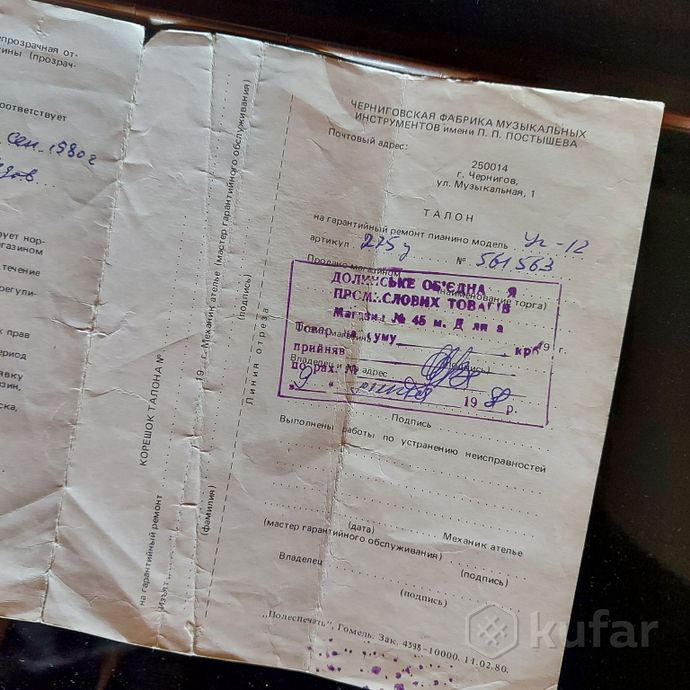 епрозрачная от-
ины (прозрач-
оответствует
сен. 1980 г
ует нор-
агазином
течение
регули-
к прав
ериод
авку
зин,
ска,
КОРЕШОК ТАЛОНА №
на гарантийный ремонт
Изъят
19 г. Механик ателье (мастер гарантийного обслуживания)
(фамилия)
(подпись)
Линия отреза
ЧЕРНИГОВСКАЯ ФАБРИКА МУЗЫКАЛЬНЫХ
ИНСТРУМЕНТОВ имени П. П. ПОСТЫШЕВА
Почтовый адрес:
250014
г. Чернигов,
ул. Музыкальная, 1
ТАЛОН
на гарантийный ремонт пианино модель Чг-12
артикул 275у № 561563
Продано магазином
(наименование торга)
ДОЛИНСЬКЕ ОБ'ЄДНА Я
ПРОМИСЛОВИХ ТОВАРІВ
Магазин № 45 м. Д лина
Товар на суму крб
19 г.
прийняв
Владелец и адрес
по рах. №
(подпись)
" 9 " 198 р.
Подпись
Выполнены работы по устранению неисправностей
(дата)
Механик ателье
(мастер гарантийного обслуживания)
(подпись)
Владелец
(подпись)
"Полеспечать", Гомель. Зак. 4398-10000. 11.02.80.
kufar